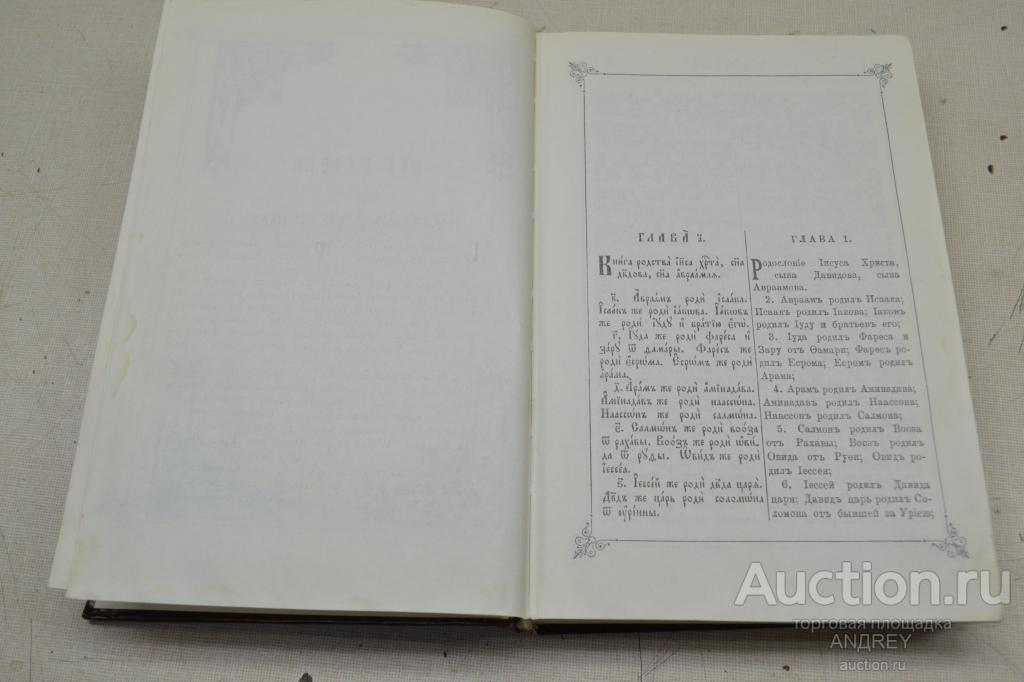 ГЛАВА̀ а҃.
Кни́га родства̀ і҆и҃са хр҃та̀, сн҃а
дв҃дова, сн҃а а҆враа́млѧ.
в҃. А҆враа́мъ родѝ і҆саа́ка.
І҆саа́къ же родѝ і҆а́кѡва. І҆а́кѡвъ
же родѝ і҆ꙋ́дꙋ и҆ бра́тїю є҆гѡ̀.
г҃. І҆ꙋ́да же родѝ фаре́са и҆
за́рꙋ ѿ ѳама́ры. Фаре́съ же
родѝ є҆срѡ́ма. Є҆срѡ́мъ же родѝ
а҆ра́ма.
д҃. А҆ра́мъ же родѝ а҆мїнада́ва.
А҆мїнада́въ же родѝ наассѡ́на.
Наассѡ́нъ же родѝ салмѡ́на.
є҃. Салмѡ́нъ же родѝ воо́за
ѿ раха́вы. Воо́зъ же родѝ ѡ҆ви́-
да ѿ рꙋ́ѳы. Ѡ҆ви́дъ же родѝ
і҆ессе́а.
ѕ҃. І҆ессе́й же родѝ дв҃да царѧ̀.
Дв҃дъ же ца́рь родѝ соломѡ́на
ѿ ᲂу҆рі́ины.
ГЛАВА 1.
Родословіе Іисуса Христа,
сына Давидова, сына
Авраамова.
2. Авраамъ родилъ Исаака;
Исаакъ родилъ Іакова; Іаковъ
родилъ Іуду и братьевъ его;
3. Іуда родилъ Фареса и
Зару отъ Ѳамари; Фаресъ ро-
дилъ Есрома; Есромъ родилъ
Арама;
4. Арамъ родилъ Аминадава;
Аминадавъ родилъ Наассона;
Наассонъ родилъ Салмона;
5. Салмонъ родилъ Вооза
отъ Рахавы; Воозъ родилъ
Овида отъ Руѳи; Овидъ ро-
дилъ Іессея;
6. Іессей родилъ Давида
царя; Давидъ царь родилъ Со-
ломона отъ бывшей за Уріею;
Auction.ru
торговая площадка
ANDREY
auction.ru